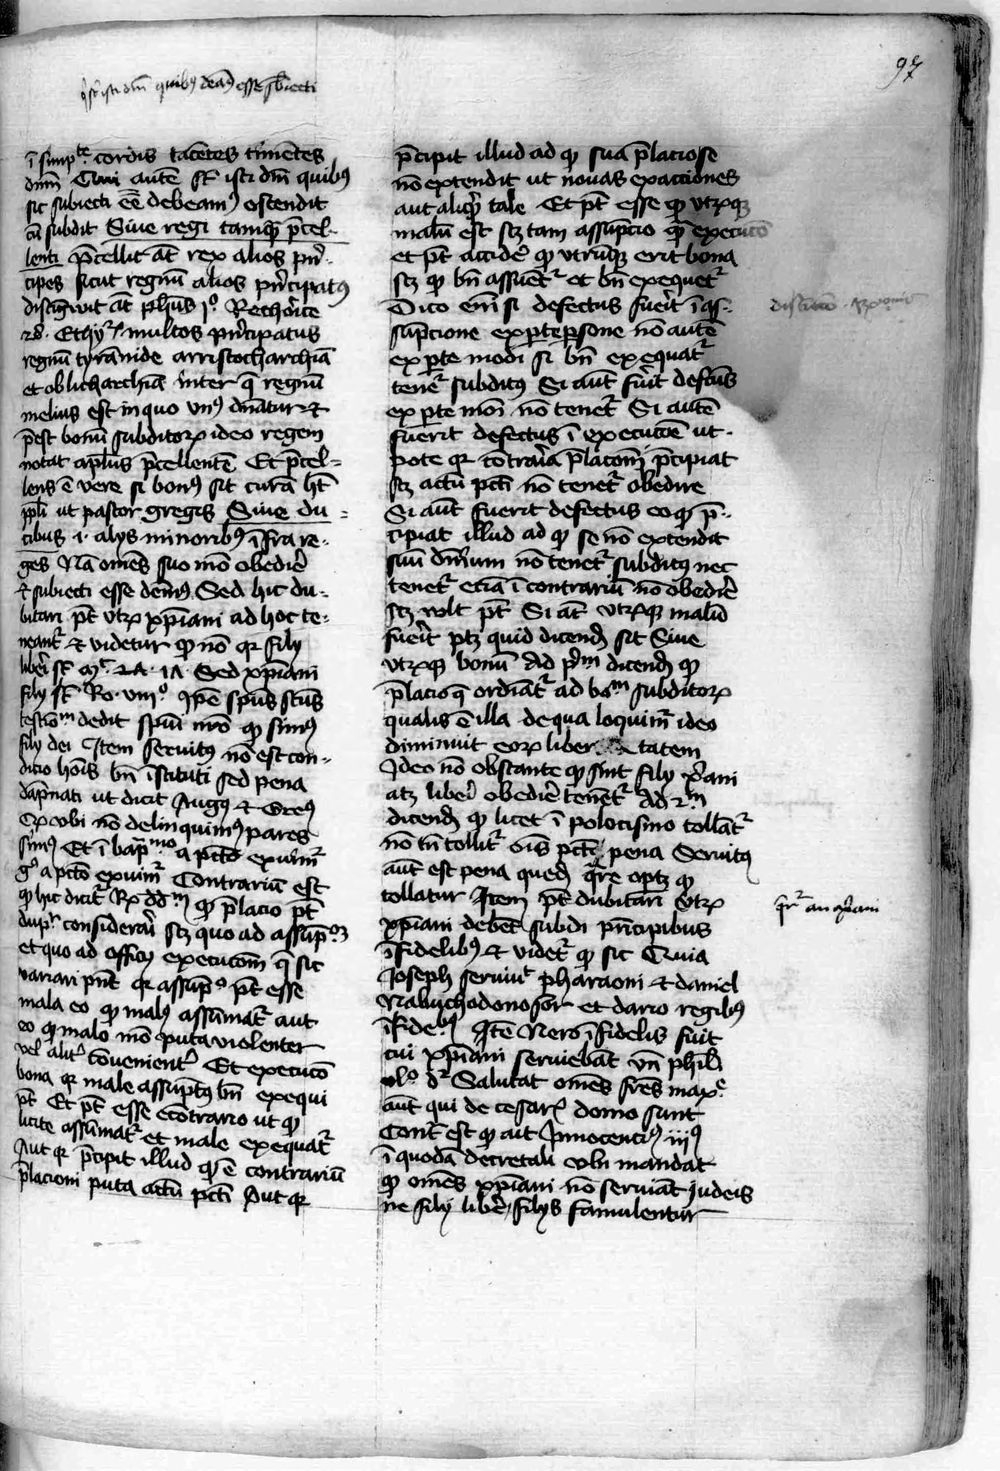 97
qui sunt isti dni quibus deamus esse subiecti
ī simplte cordis tacētes timētes
dnm̄ Qui autē st̄ isti dnī quibꝰ
sic subiecti eē̄ debeamꝰ ostendit
cū subdit Siue regi tamqꝫ p̄cel-
lenti p̄cellit āt rex alios prī-
cipes sicut regnū alios prīcipatꝰ
distīgwit āt phūs jº Rethoīce
28. Ethyᵒꝝ. multos prīcipatus
regnū tyrānide arristocharchiā
et oblicharchiā inter q̄ regnū
melius est in quo vnꝰ dnatur et
p̄est bonū subditoꝝ ideo regem
notat aplūs p̄cellentē Et p̄cel-
lens ē vere si bonꝰ sit curā ht̄
ppli ut pastor gregis Siue du-
cibus .i. alys minoribꝰ īfra re-
ges Nā omēs suo mō obedirē
et subiecti esse dēmꝰ Sed hic du-
bitari pt̄ vtꝝ xp̄iani ad hoc te-
neant̄ et videtur qꝫ nō qꝛ fily
liberi st̄ mᵗ 2A. 1A. Sed xp̄iani
fily st̄ Ro. viijº Ipē spūs scūs
testioᵐ dedit spūi nrō qꝫ simꝰ
fily dei Item seruitꝰ nō est con-
dicio hoīs bn̄ īstituti sed pena
dāpnati ut dicit Augꝰ et Gregꝰ
Ex vbi nō delinquimꝰ pares
simꝰ Et ī bapᵐᵒ a pctō exuimꝰ
gº a pctō exuimꝰ Contrariū est
qꝫ hic dicit̄ Rº ddᵐ qꝫ p̄lacio pt̄
dupʳ considerari scꝫ quo ad assūpᵒꝫ
et quo ad officij execucōm q̄ sic
variari pn̄t qꝛ assūpº pt̄ esse
mala eo qꝫ malꝰ assūmat̄ aut
eo qꝫ malo mō puta violenter
vel alit̄ cōuenient̄ Et execucō
bona qꝛ male assūptꝰ bn̄ exequi
pt̄ Et pt̄ esse ecōtrario ut qꝫ
licite assūmat̄ et male exequat̄
Aut qꝛ p̄cipit illud qꝫ ē contrariū
p̄lacioni puta actū pcti Aut qꝛ
p̄cipit illud ad qꝫ sua p̄lacio se
nō extendit ut nouas exacciones
aut aliqꝫ tale Et pt̄ esse qꝫ vtꝝqꝫ
malū est scꝫ tam assūpcio qꝫ execucō
et pt̄ accidē qꝫ vtrūqꝫ erit bona
scꝫ qꝫ bn̄ assuet̄ et bn̄ exequet̄
Dico em̄ si defectus fueīt ī as-
sūpcione ex pte psone nō autē
ex pte modi si bn̄ exequat̄
tenet̄ subditꝰ Si aūt fuīt defcūs
ex pte moi nō tenet̄ Si autē
fuerit defectus ī execucōe ut-
pote qꝛ cōtraria p̄lacōni p̄cipiat
scꝫ actū pcti nō tenet̄ obedire
Si aūt fuerit defectus eo qꝫ p̄-
cipiat illud ad qꝫ se nō extendit
suū dnīum nō tenet̄ subditꝰ nec
tenet̄ eciā ī contrariū nō obedirē
scꝫ volt pt̄ Si āt vtꝝqꝫ malū
fueīt ptꝫ quid dicendꝫ sit Siue
vtꝝqꝫ bonū Ad pᵐ dicendꝫ qꝫ
p̄lacio q̄ ordiat̄ ad boᵐ subditoꝝ
qualis ē illa de qua loquimꝰ ideo
diminuit eoꝝ liber tatem
Ideo nō obstante qꝫ sint fily xp̄ani
atꝫ liberi obedirē tenēt̄ Ad 2ᵐ
dicendꝫ qꝫ licet ī polocismo tollat̄
nō tn̄ tollit̄ oīs pcti pena Seruitꝰ
aūt est pena quedꝫ qr̄e optꝫ qꝫ
tollatur Item pt̄ dubitari vtꝝ
xp̄iani debēt subdi prīcipibus
īfidelibꝰ et videt̄ qꝫ sic Quia
Joseph seruiuᵗ pharaoni et daniel
Nabuchodonosor et dario regibꝰ
īfideᵇꝰ Itē Nero īfidelis fuit
cui xp̄iani seruiebāt vn̄ phili
vlº dʳ Salutat omēs frēs maxᵉ
aūt qui de cesaris domo sunt
Contʳ est qꝫ ait Innocenciꝰ iijꝰ
ī quodā decretali vbi mandat
qꝫ omēs xp̄iani nō seruiāt judeis
ne filij liberi filys famulentur
qrʳ an xp̄iani